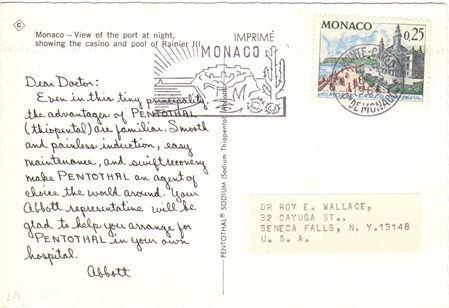 Monaco – View of the port at night,
showing the casino and pool of Rainier III
IMPRIMÉ
MONACO
MONACO
0,25
Dear Doctor:
Even in this tiny principality,
the advantages of PENTOTHAL
(thiopental) are familiar. Smooth
and painless induction, easy
maintenance, and swift recovery
make PENTOTHAL an agent of
choice the world around. Your
Abbott representative will be
glad to help you arrange for
PENTOTHAL in your own
hospital.
Abbott
PENTOTHAL® SODIUM (Sodium Thiopental
DR ROY E. WALLACE,
32 CAYUGA ST.,
SENECA FALLS, N. Y. 13148
U. S. A.